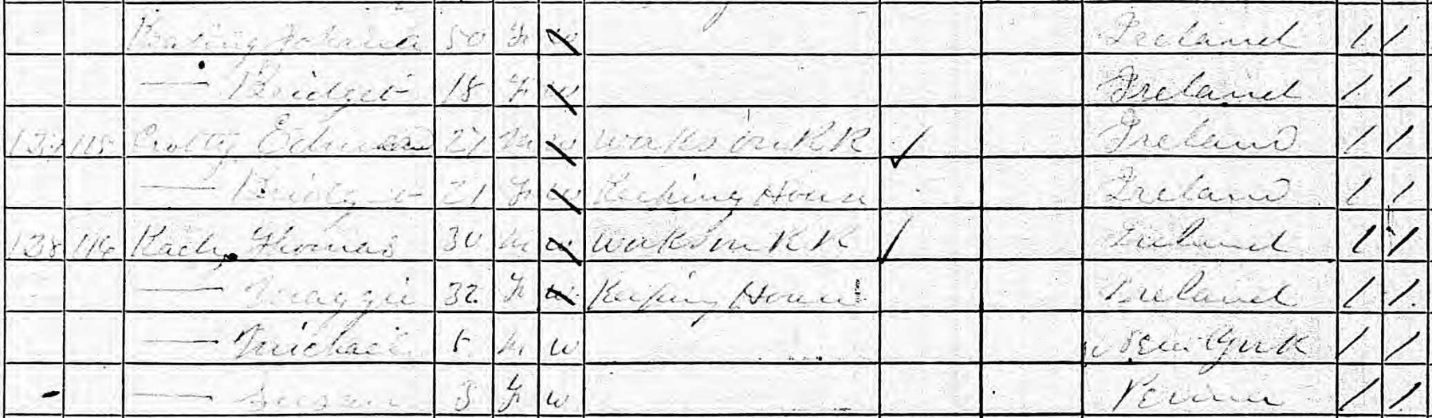 Johanna 50 F w Ireland 1 1
— Bridget 18 F w Ireland 1 1
137 115 Crotty Edmund 27 M w works on RR ✓ Ireland 1 1
— Bridget 21 F w Keeping House Ireland 1 1
138 116 Thomas 30 M w works on RR / Ireland 1 1
— Maggie 32 F w Keeping House Ireland 1 1
— Michael M w New York 1 1
— Susan F w Penna 1 1